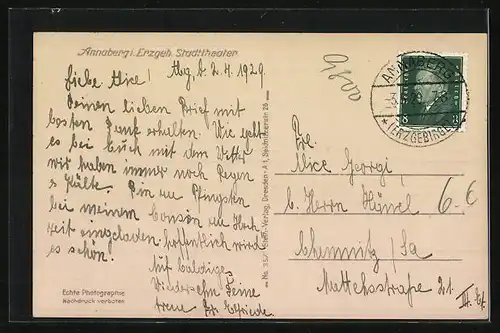 Annaberg i. Erzgeb. Stadttheater
Liebe Alice! Abg, b. 2.4. 1929.
Deinen lieben Brief mit
besten Dank erhalten. Wie geht
es bei Euch mit dem Wetter
wir haben immer noch Regen
u Kälte. Bin zu Pfingsten
bei meinem Cousin zur Hoch
zeit eingeladen hoffentlich wird
es schön!
Auf baldiges
Wiedersehn Deine
treue
Echte Photographie
Nachdruck verboten
Trinks-Verlag, Dresden-A 1, Seidnitzerstr. 26
ANNABERG
* (ERZGEBIRGE)
8 8
Frl.
Alice Georgi,
b. Herrn
Chemnitz / Sa
Mathesstraße 21.
III. Et.
6.-€